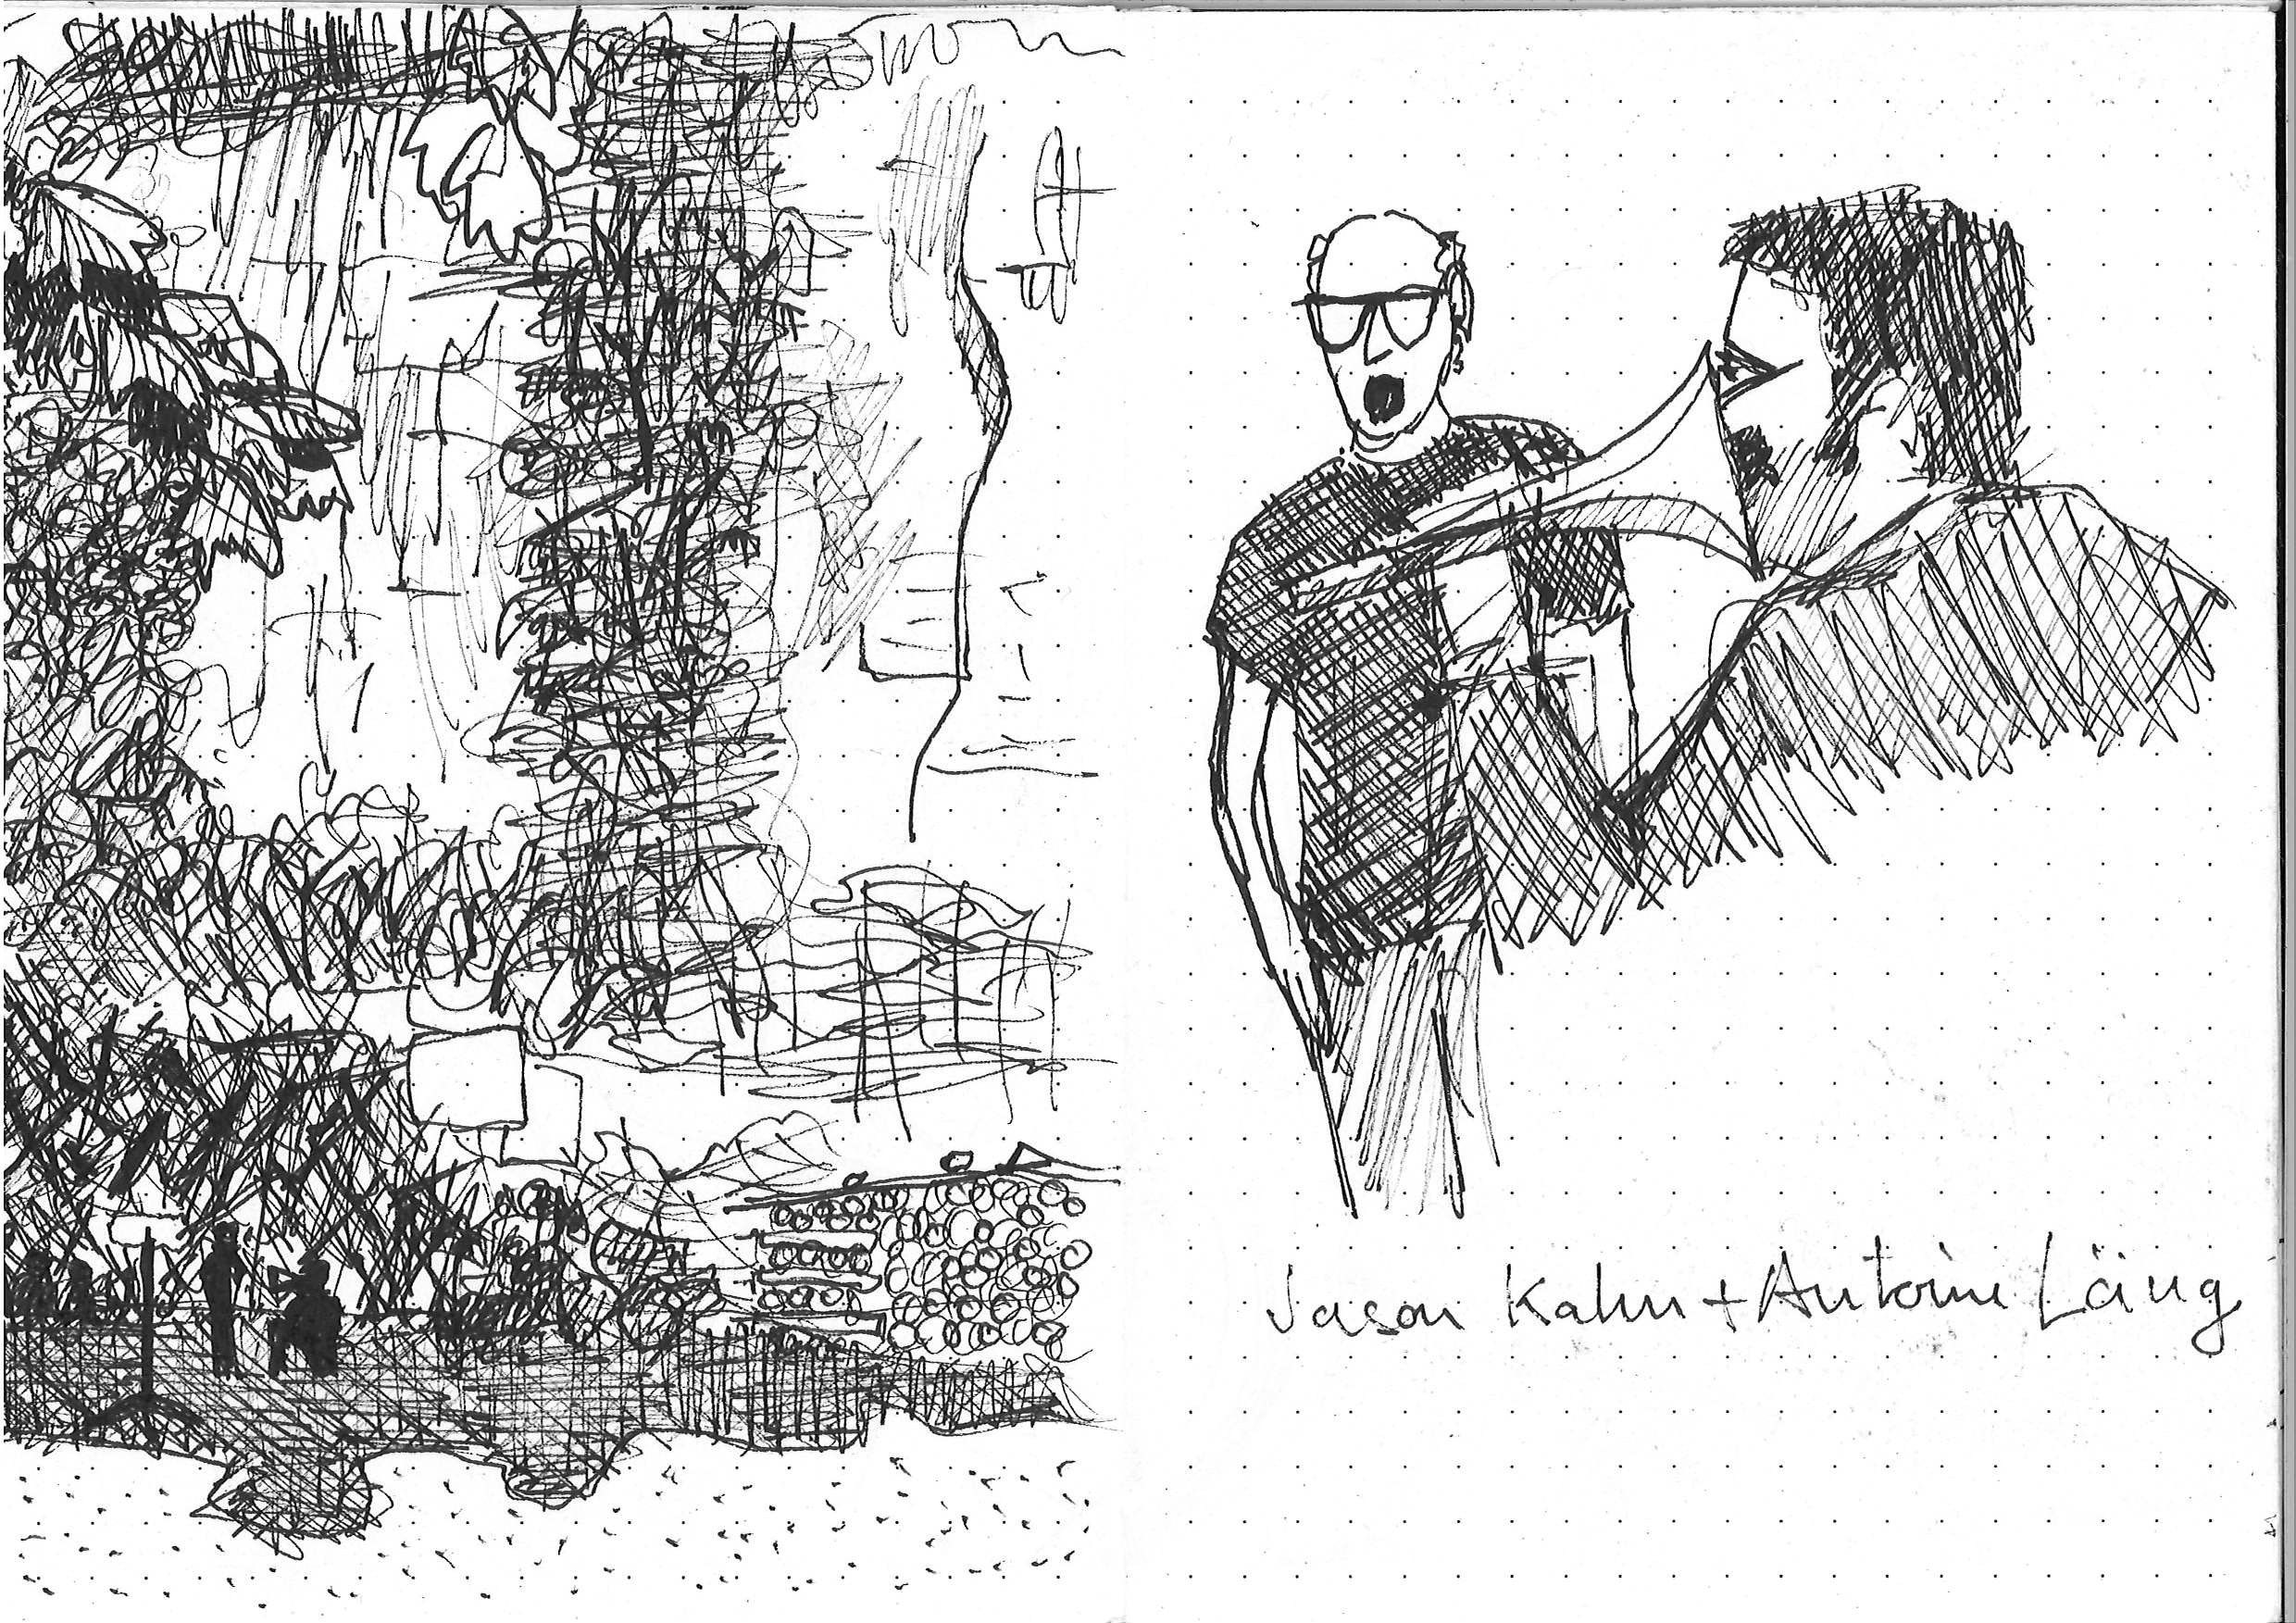 Jason Kahn + Antoine Läng